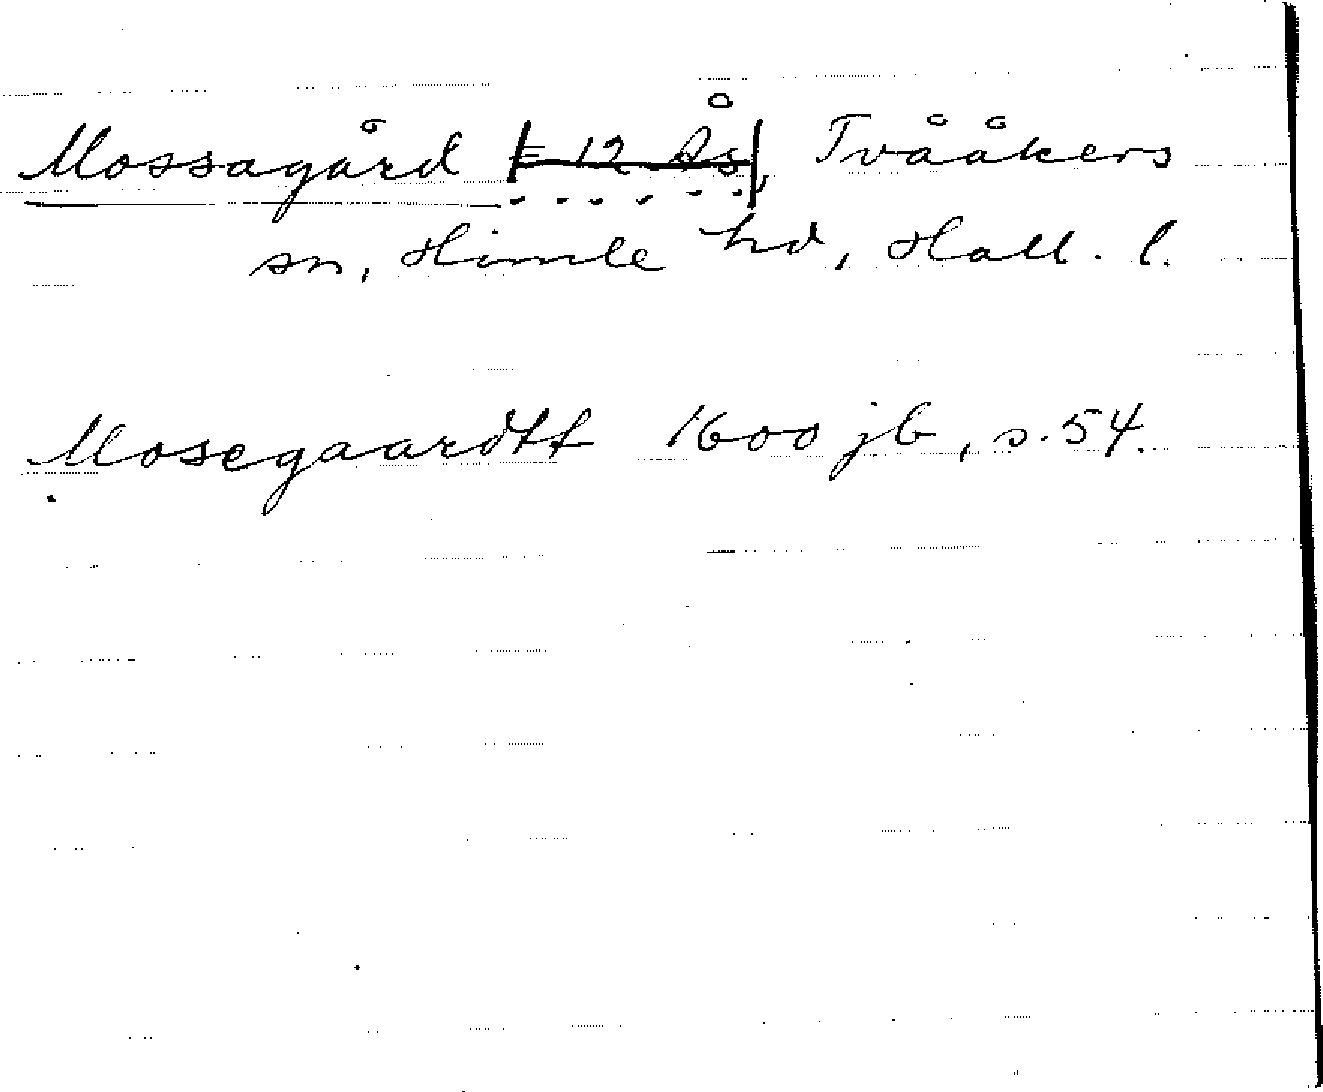 Mossagård = 12 Ås, Tvååkers
sn, Himle hd, Hall. l.
Mosegaardtt 1600 jb, s. 54.